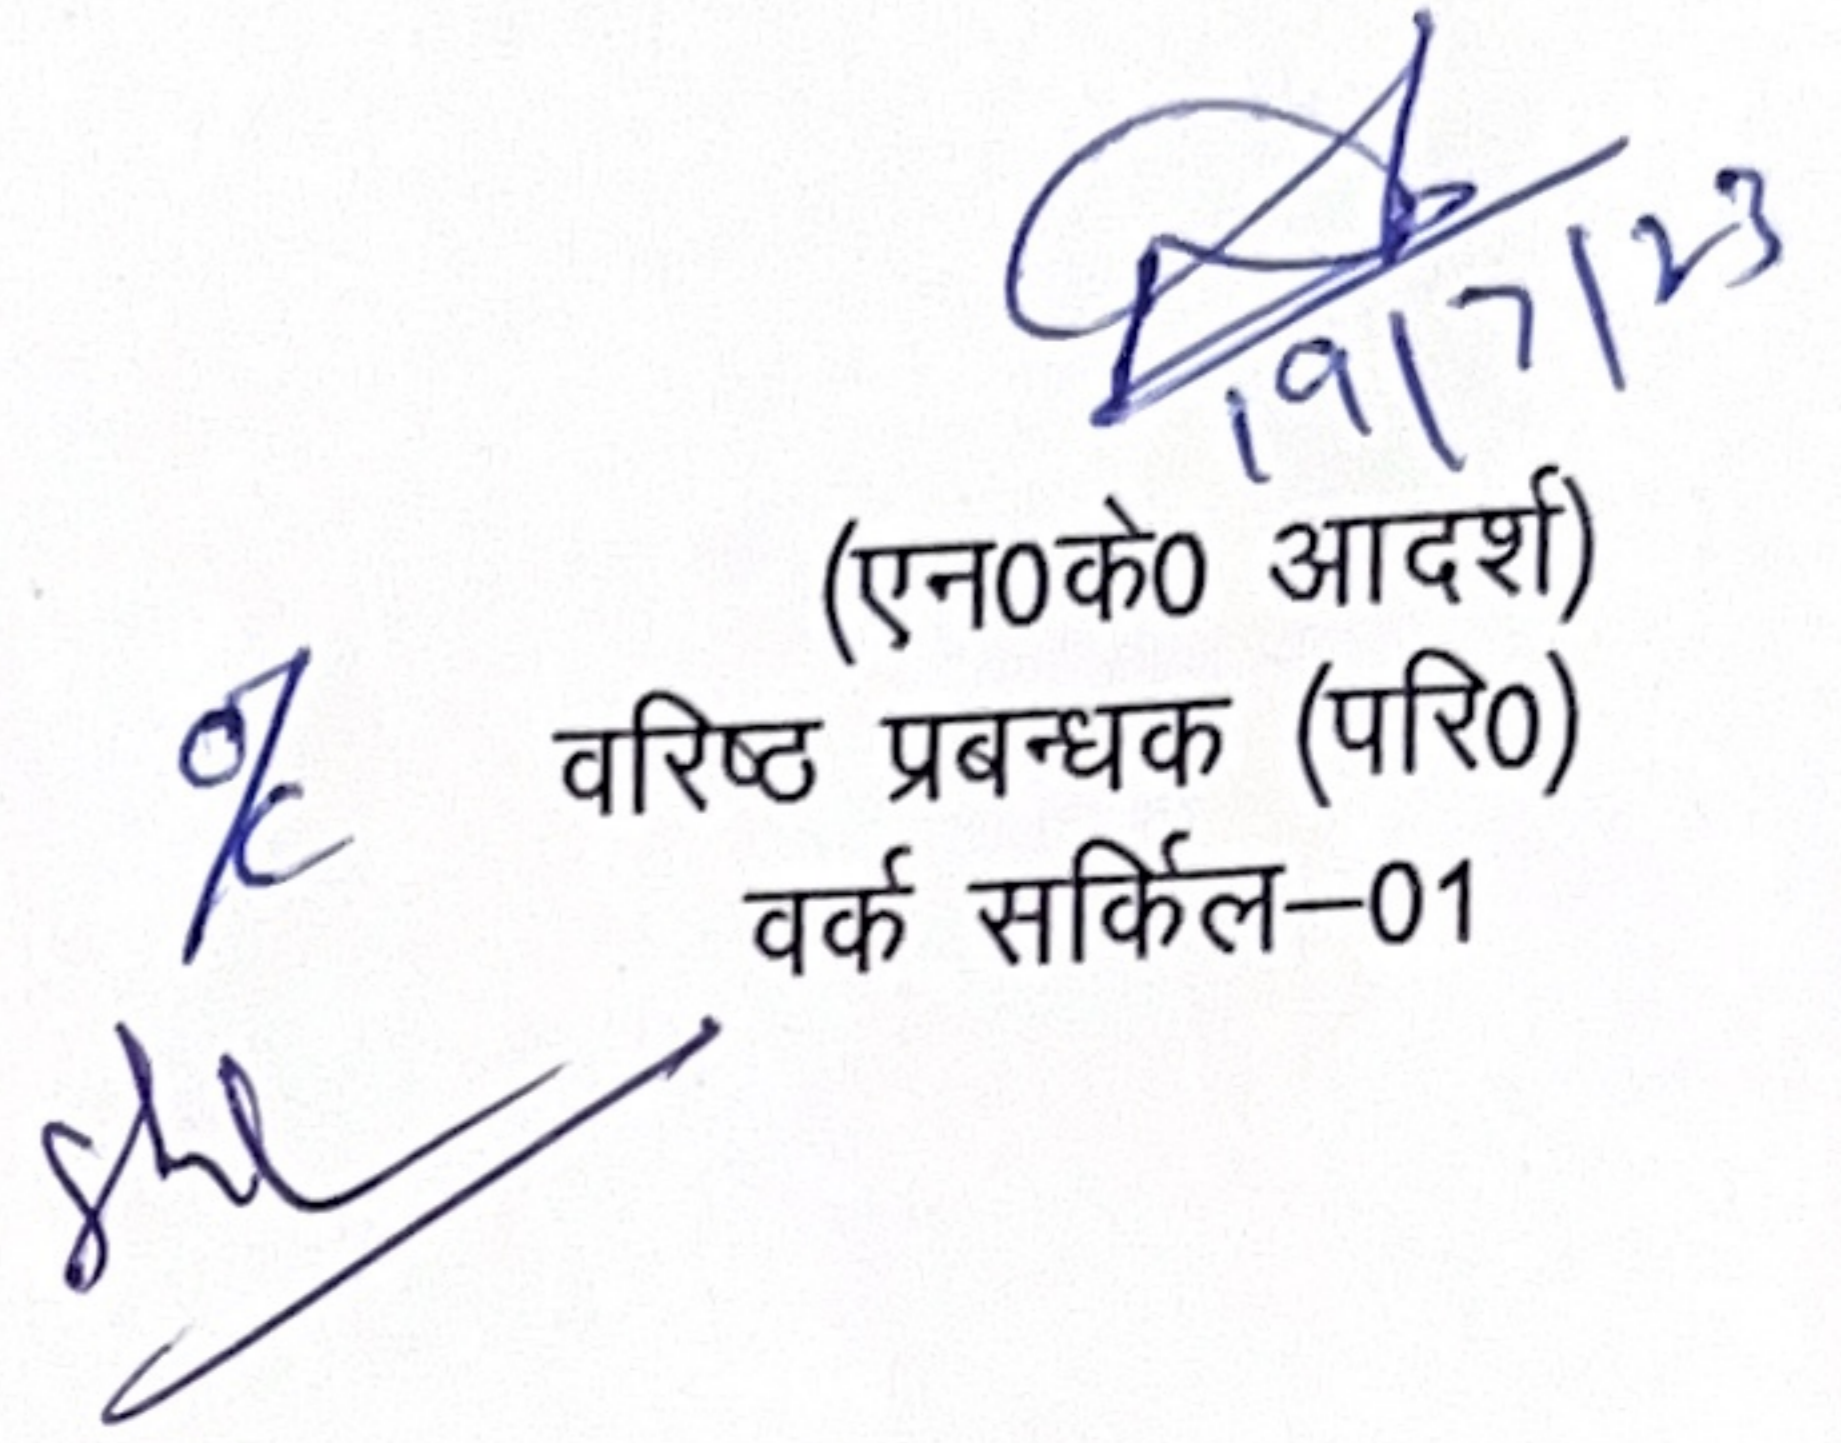 19/7/23
(एन0के0 आदर्श)
वरिष्ठ प्रबन्धक (परि0)
O/C
वर्क सर्किल-01